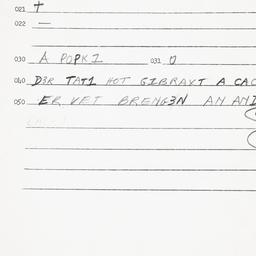 021 +
022 –
030 A POPK1 031 0
040 D3R TAT1 HOT GIBRAXT A CAC
050 ER VET BRENG3N AN AND